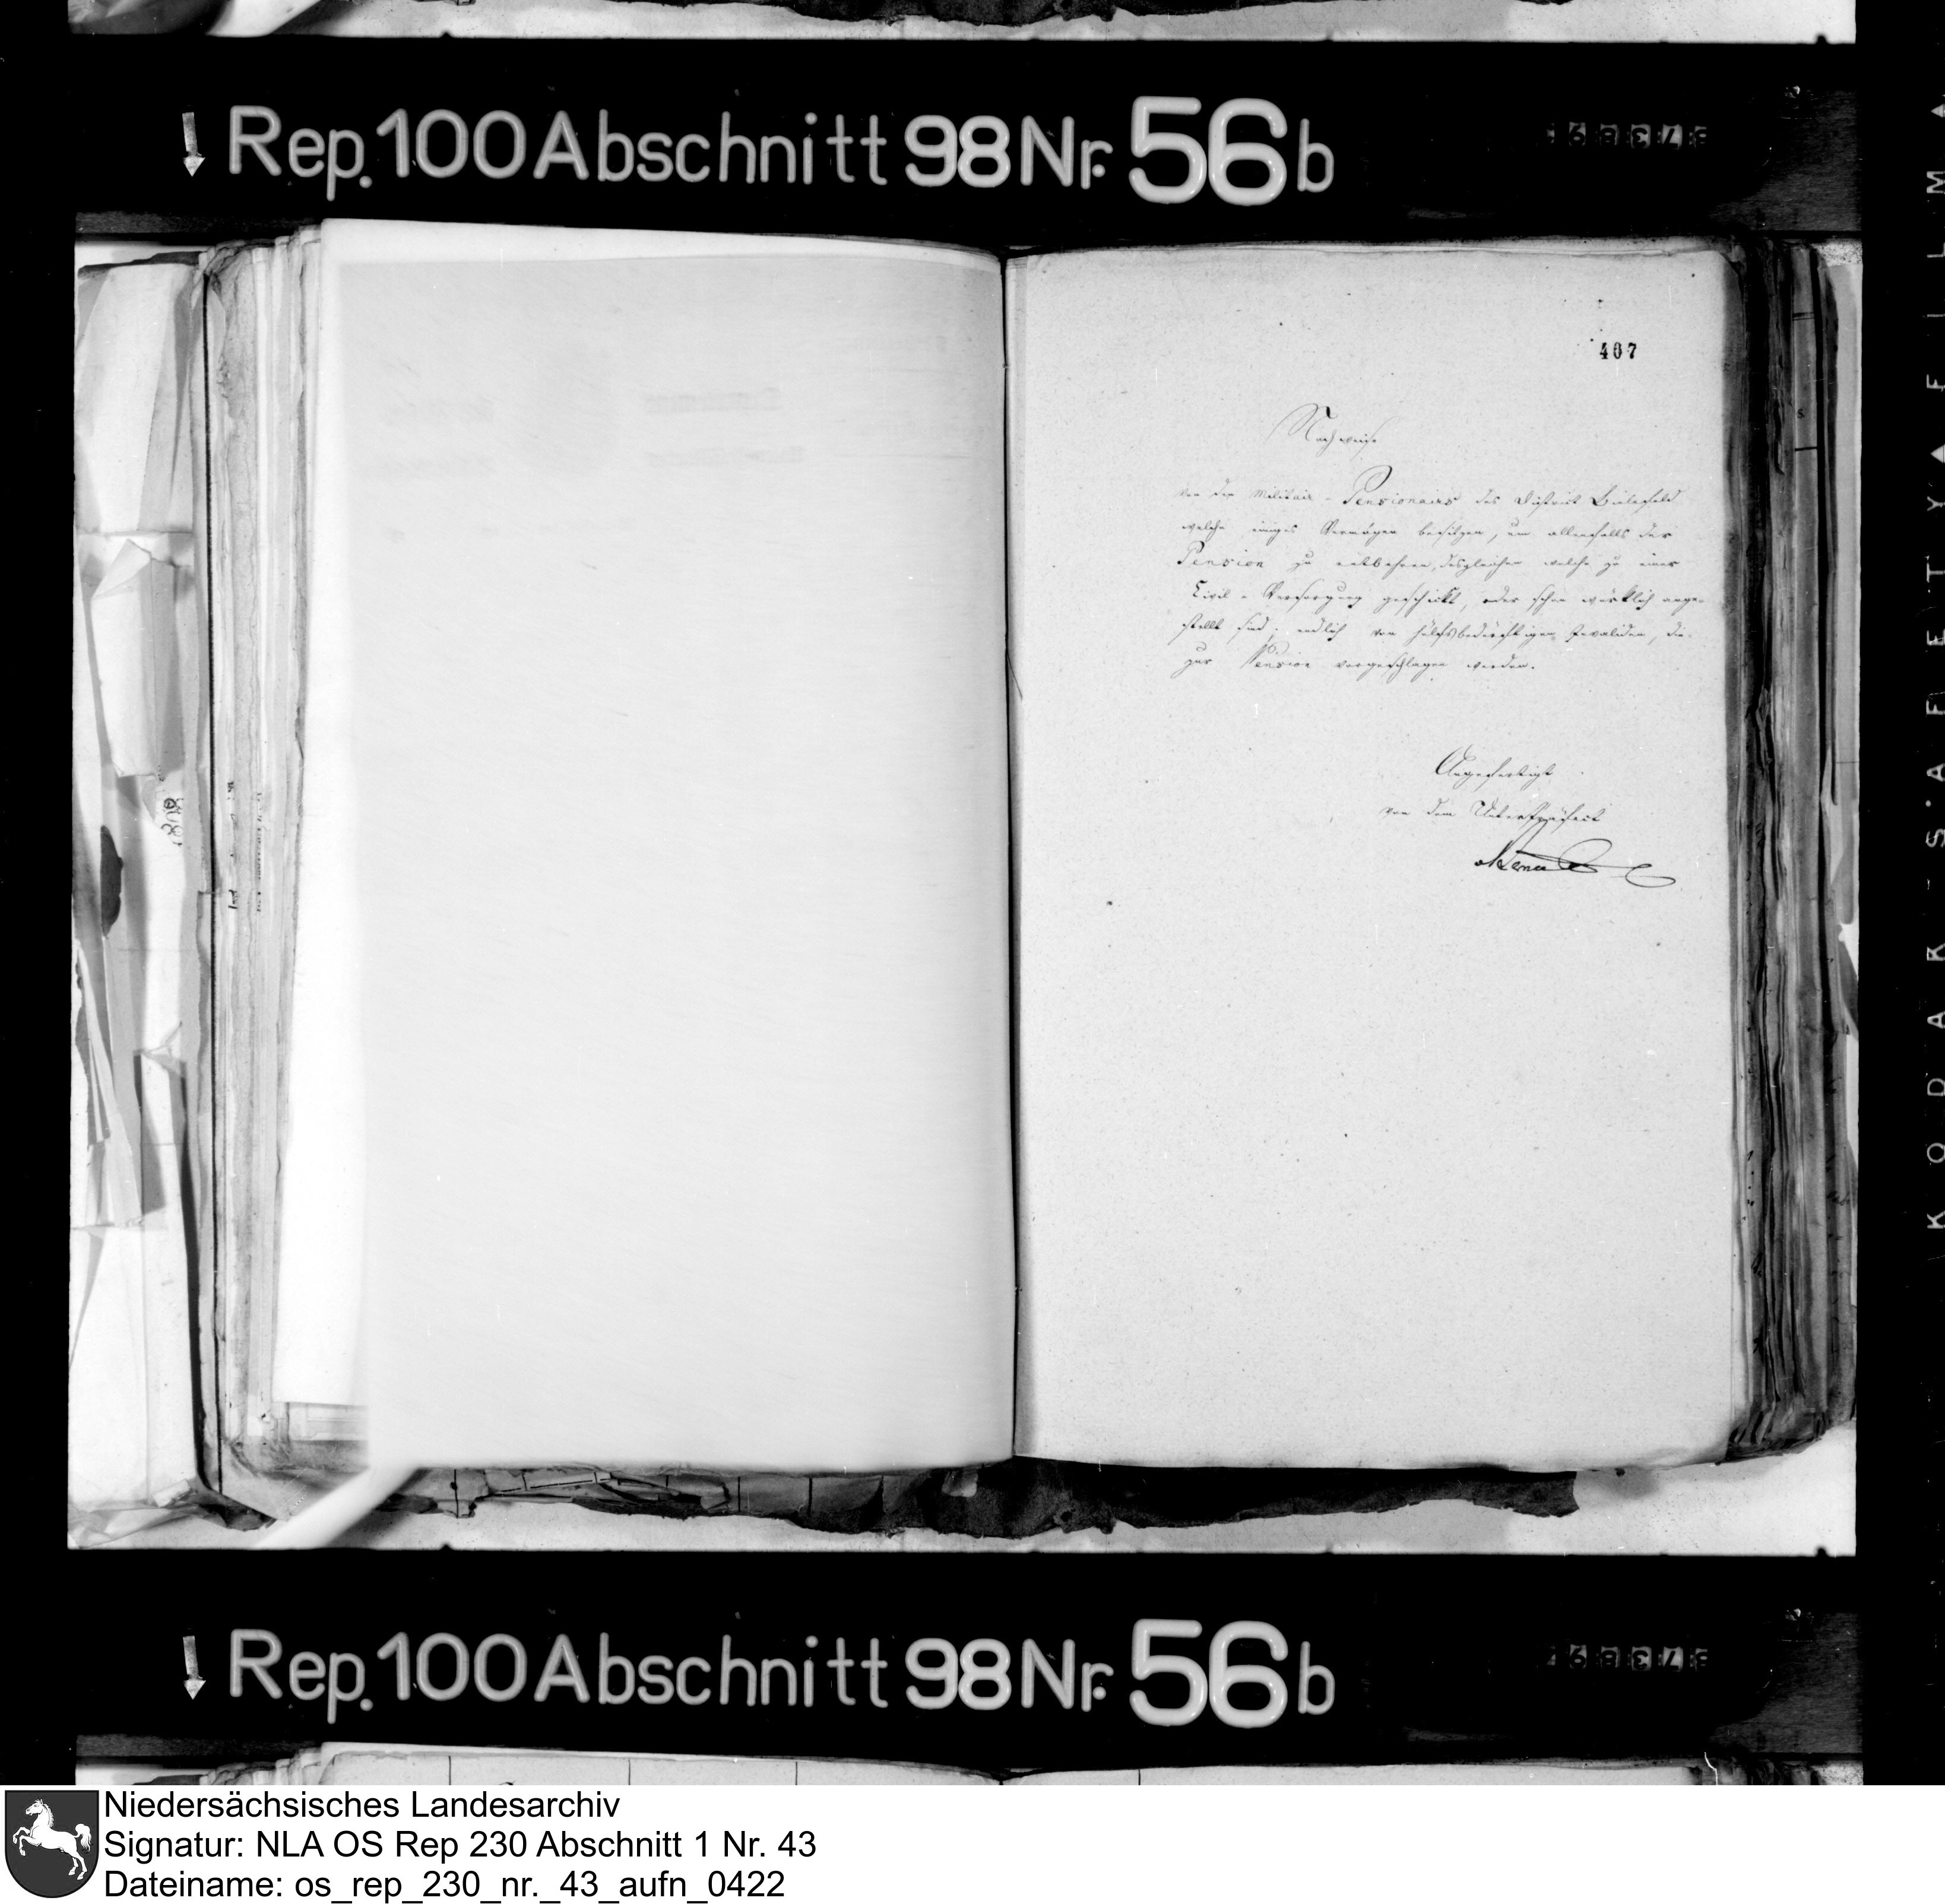 Rep. 100 Abschnitt 98 Nr. 56 b
407
Nachweise
von den Militair-Pensionairs des District Bielefeld
welche einiges Vermögen besitzen, um allenfalls der
Pension zu entbehren, desgleichen welche zu einer
Civil-Versorgung geschickt, oder schon würklich ange-
stellt sind; endlich von hülfsbedürftigen Invaliden, die
zur Pension vorgeschlagen werden.
Angefertigt
von dem Unterpräfect
KODAK·SAFETY FILM
Rep. 100 Abschnitt 98 Nr. 56 b
Niedersächsisches Landesarchiv
Signatur: NLA OS Rep 230 Abschnitt 1 Nr. 43
Dateiname: os_rep_230_nr._43_aufn_0422